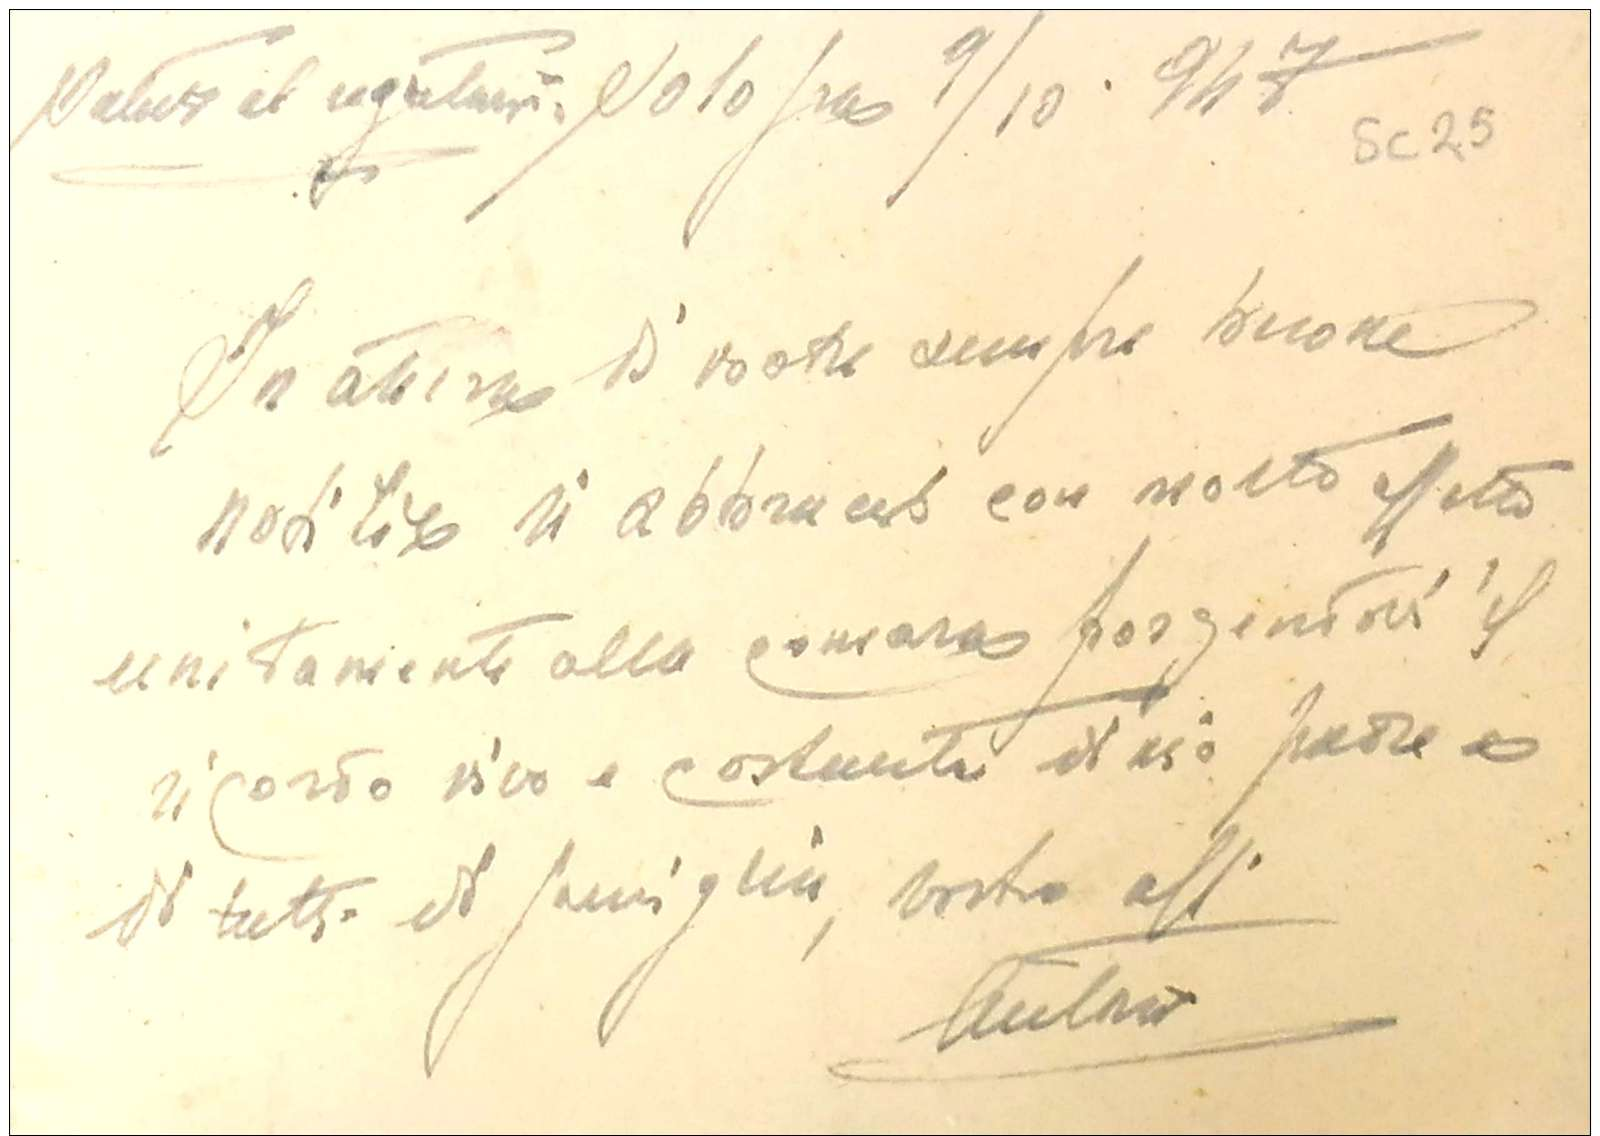 Solofra 9/10. 947
Sc 25
In attesa di vostre sempre buone
notizie vi abbraccio con molto affetto
unitamente alla comara porgendovi il
ricordo vivo e costante di mio padre e
di tutti di famiglia, vostro aff.